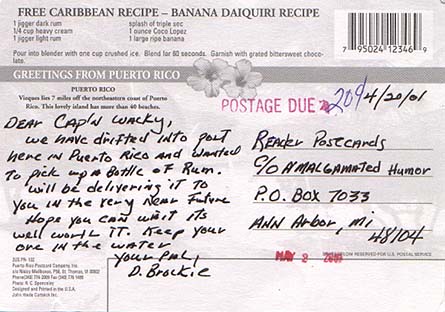 FREE CARIBBEAN RECIPE – BANANA DAIQUIRI RECIPE
1 jigger dark rum
1/4 cup heavy cream
1 jigger light rum
splash of triple sec
1 ounce Coco Lopez
1 large ripe banana
Pour into blender with one cup crushed ice. Blend for 60 seconds. Garnish with grated bittersweet choco-
late.
7 95024 12346 9
GREETINGS FROM PUERTO RICO
PUERTO RICO
Vieques lies 7 miles off the northeastern coast of Puerto
Rico. This lovely island has more than 40 beaches.
POSTAGE DUE 20¢
4/20/01
DEAR CAP'N WACKY,
we have drifted into port
here in Puerto Rico and wanted
to pick up a Bottle of Rum.
will be delivering it to
you in the very near Future
Hope you can wait its
well worth IT. Keep your
ore in the water
your Pal,
D. Brockie
Reader Postcards
c/o AMALGAMATED Humor
P.O. Box 7033
ANN Arbor, Mi
48104
MAY 2 2001
RESERVED FOR U.S. POSTAL SERVICE
Puerto Rico Postcard Company, Inc.
Photo: R. C. Spencely
Designed and Printed in the U.S.A.
John Hinde Curteich Inc.